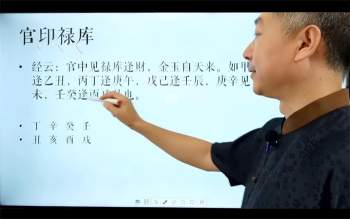 官印禄库
• 经云：官中见禄库逢财，金玉自天来。如甲
逢乙丑，丙丁逢庚午，戊己逢壬辰，庚辛见
未，壬癸逢
也。
• 丁 辛 癸 壬
• 丑 亥 酉 戌